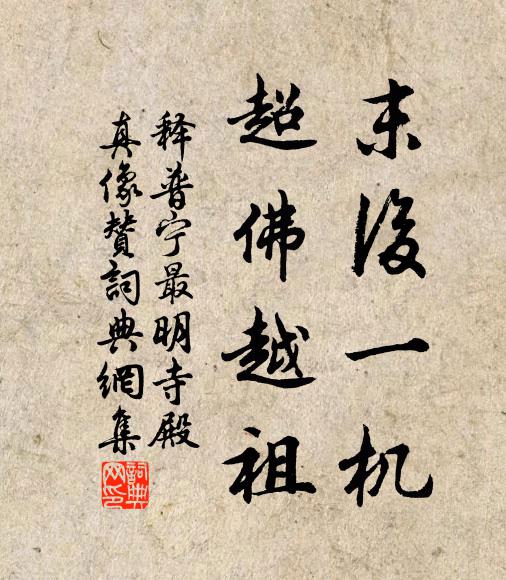 末後一机
超佛越祖
释普宁最明寺殿
真像赞詞典網集
詞典
网印